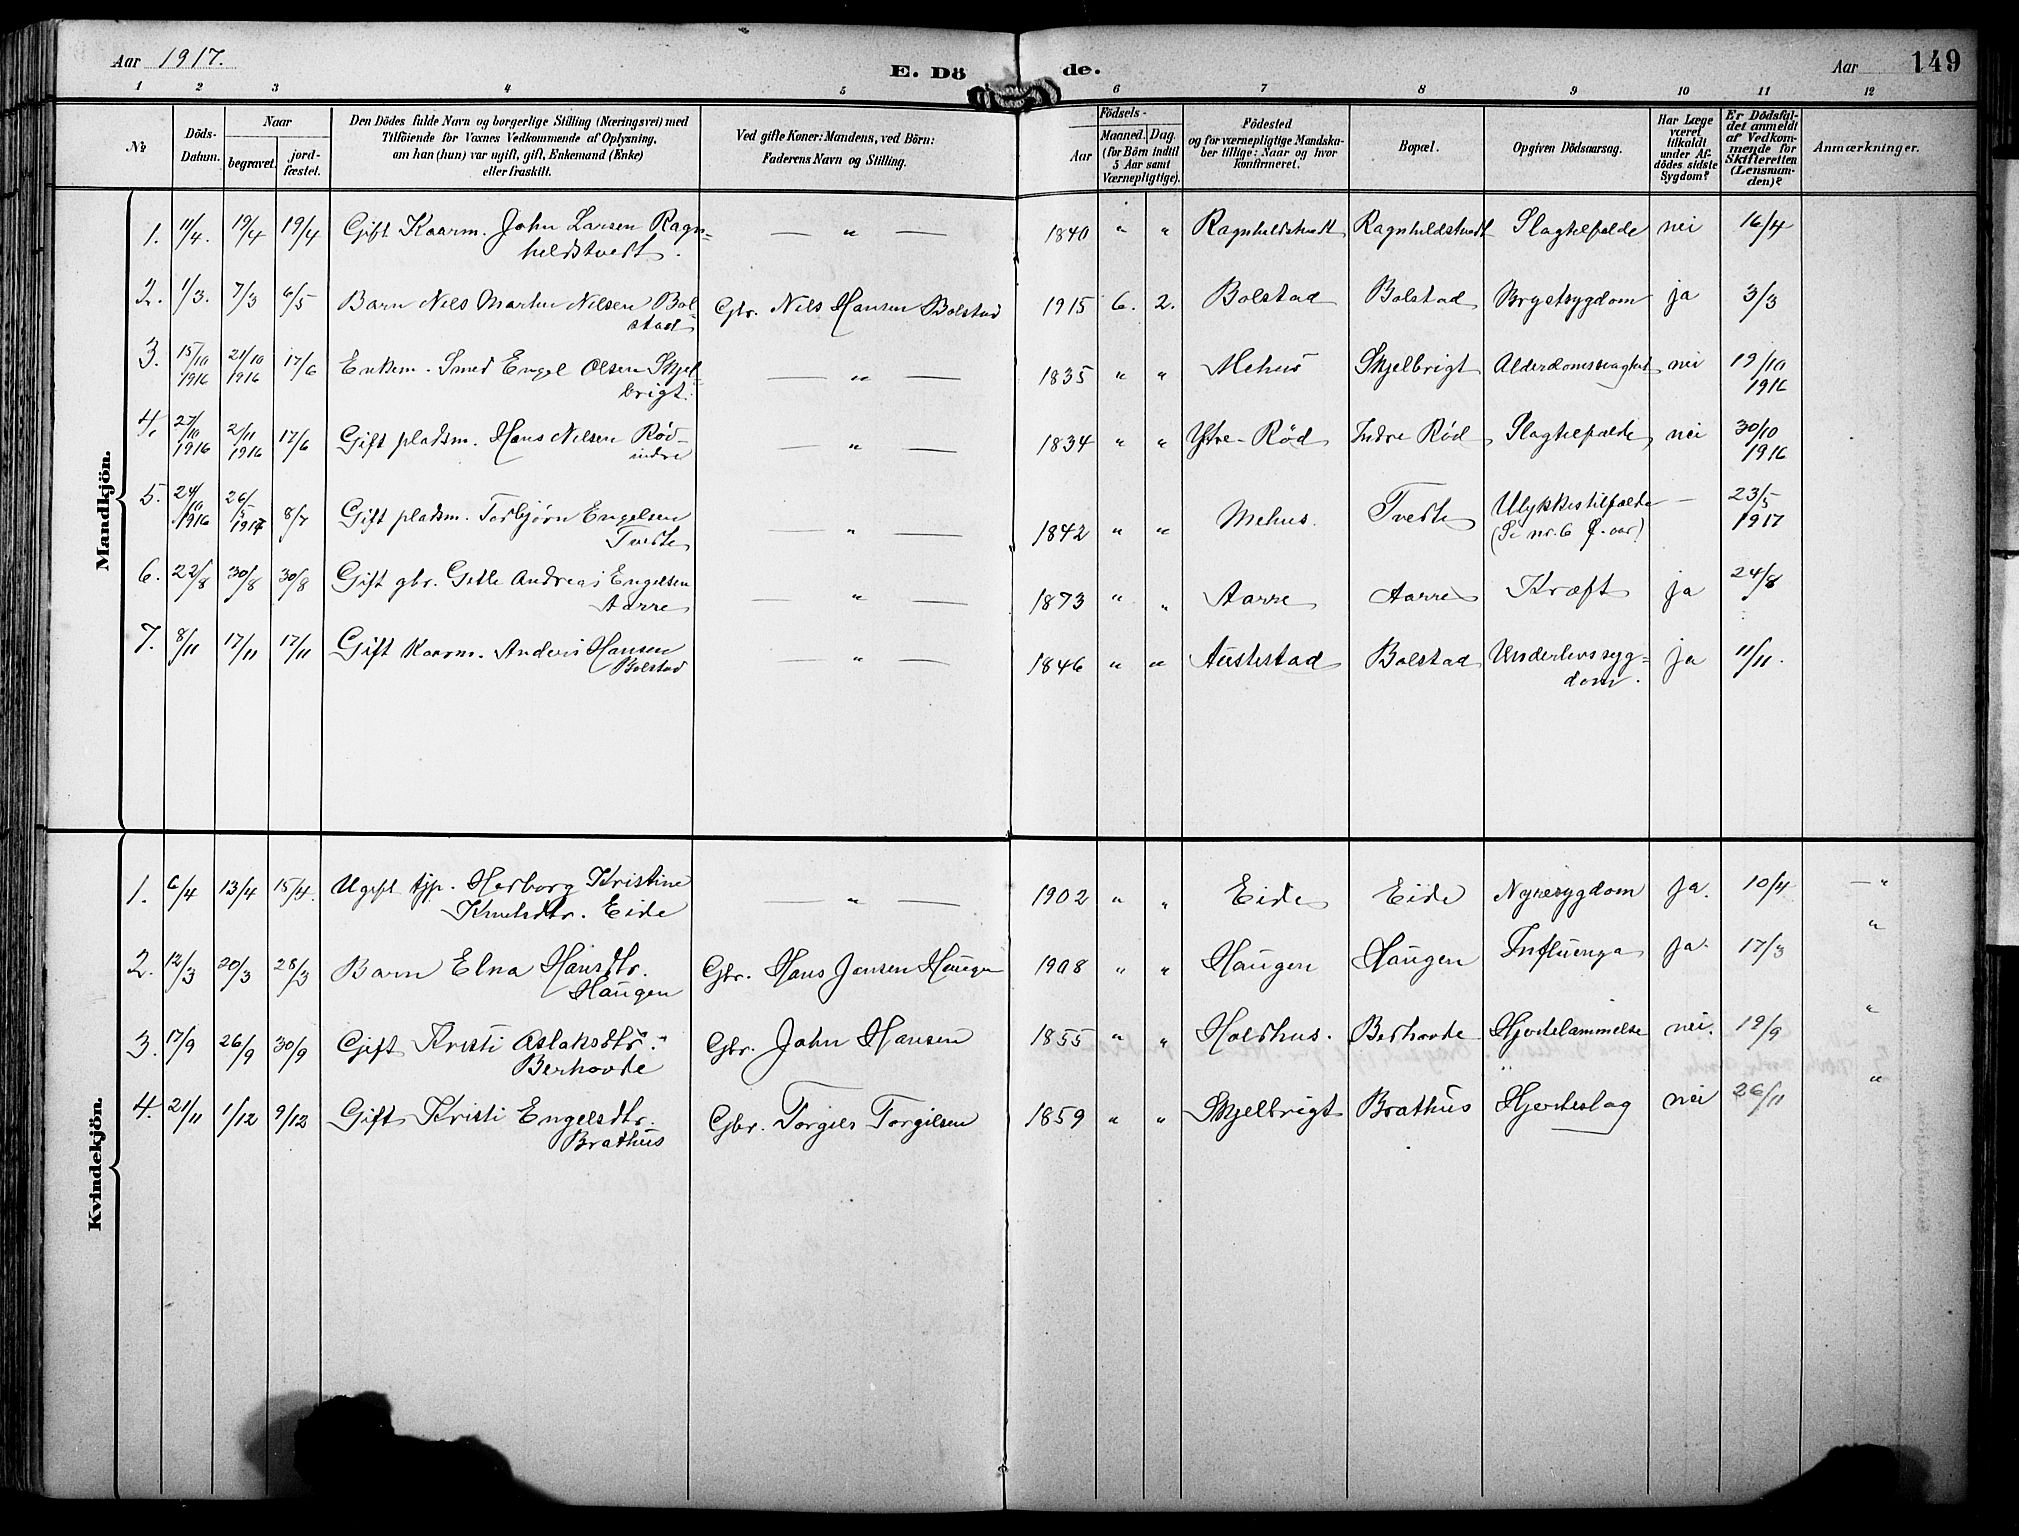 Aar 1917.
E. Dö de.
Aar
149
1 2 3 4 5 6 7 8 9 10 11 12
No
Döds-Datum.
Naar
begravet.
jord-fæstet.
Den Dödes fulde Navn og borgerlige Stilling (Næringsvei) med
Tilföiende for Voxnes Vedkommende af Oplysning,
om han (hun) var ugift, gift, Enkemand (Enke)
eller fraskilt.
Ved gifte Koner: Mandens, ved Börn:
Faderens Navn og Stilling.
Födsels-
Aar
Maaned. Dag.
(for Börn indtil
5 Aar samt
Værnepligtige).
Födested
og for værnepligtige Mandska-
ber tillige: Naar og hvor
konfirmeret.
Bopæl.
Opgiven Dödsaarsag.
Har Læge
været
tilkaldt
under Af-
dödes sidste
Sygdom?
Er Dödsfal-
det anmeldt
af Vedkom-
mende for
Skifteretten
(Lensman-
den)?
Anmærkninger.
Mandkjön.
1. 11/4. 19/4 19/4 Gift Kaarm. John Larsen Ragn= — „ — 1840 „ „ Ragnhildstvedt Ragnhildstvedt Slagtilfælde nei 16/4
hildstvedt.
2. 1/3. 7/3 6/5 Barn Nils Martin Nilsen Bol- Gbr. Nils Hansen Bolstad 1915 6. 2. Bolstad Bolstad Brystsygdom ja 3/3
stad
3. 15/10 21/10 17/6 Enkem. Smed Engel Olsen Skjel- — „ — 1835 „ „ Mehus Skjelbrigt Alderdomssvaghed nei 19/10
1916 1916 brigt. 1916
4. 27/10 2/11 17/6 Gift pladsm. Hans Nilsen Rød- — „ — 1834 „ „ Ytre-Rød Indre Rød Slagtilfælde nei 30/10
1916 1916 indre 1916
5. 24/10 26/5 8/7 Gift pladsm. Torbjørn Engelsen — „ — 1842 „ „ Mehus. Tveite Ulykkestilfælde — 23/5
1916 1917 Tveite (Se nr. 6 f. aar) 1917
6. 22/8 30/8 30/8 Gift gbr. Gitle Andreas Engelsen — „ — 1873 „ „ Aarre Aarre Kræft ja 24/8
Aarre
7. 8/11 17/11 17/11 Gift Kaarm. Anders Hansen — „ — 1846 „ „ Austestad Bolstad Underlivssyg= ja 11/11.
Bolstad dom.
Kvindekjön.
1. 6/4 13/4 15/4. Ugift tjp. Herborg Kristine — „ — 1902 „ „ Eide Eide Nyresygdom ja. 10/4 — „
Knutsdtr. Eide
2. 12/3 20/3 28/3 Barn Elna Hansdtr. Gbr. Hans Jansen Haugen 1908 „ „ Haugen Haugen Influenza ja. 17/3 „
Haugen
3. 17/9 26/9 30/9 Gift Kristi Aslaksdtr. Gbr. John Hansen 1855 „ „ Holdhus. Berhovde Hjertelammelse nei. 19/9 „
Berhovde
4. 21/11 1/12 9/12 Gift Kristi Engelsdtr. Gbr. Torgils Torgilsen 1859 „ „ Skjelbrigt Brathus Hjerteslag nei 26/11 „
Brathus